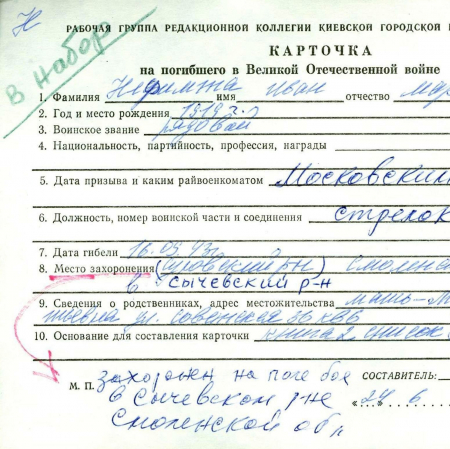 Н
В набор
РАБОЧАЯ ГРУППА РЕДАКЦИОННОЙ КОЛЛЕГИИ КИЕВСКОЙ ГОРОДСКОЙ
КАРТОЧКА
на погибшего в Великой Отечественной войне
1. Фамилия имя Иван отчество
2. Год и место рождения 1919 г.
3. Воинское звание рядовой
4. Национальность, партийность, профессия, награды
5. Дата призыва и каким райвоенкоматом Московским
6. Должность, номер воинской части и соединения стрелок
7. Дата гибели 16.03.43
8. Место захоронения
в Сычевский р-н
9. Сведения о родственниках, адрес местожительства мать-
ул.
10. Основание для составления карточки книга 2, список
захоронен на поле боя
СОСТАВИТЕЛЬ:
М. П.
в Сычевском р-не
«24 6
Смоленской обл